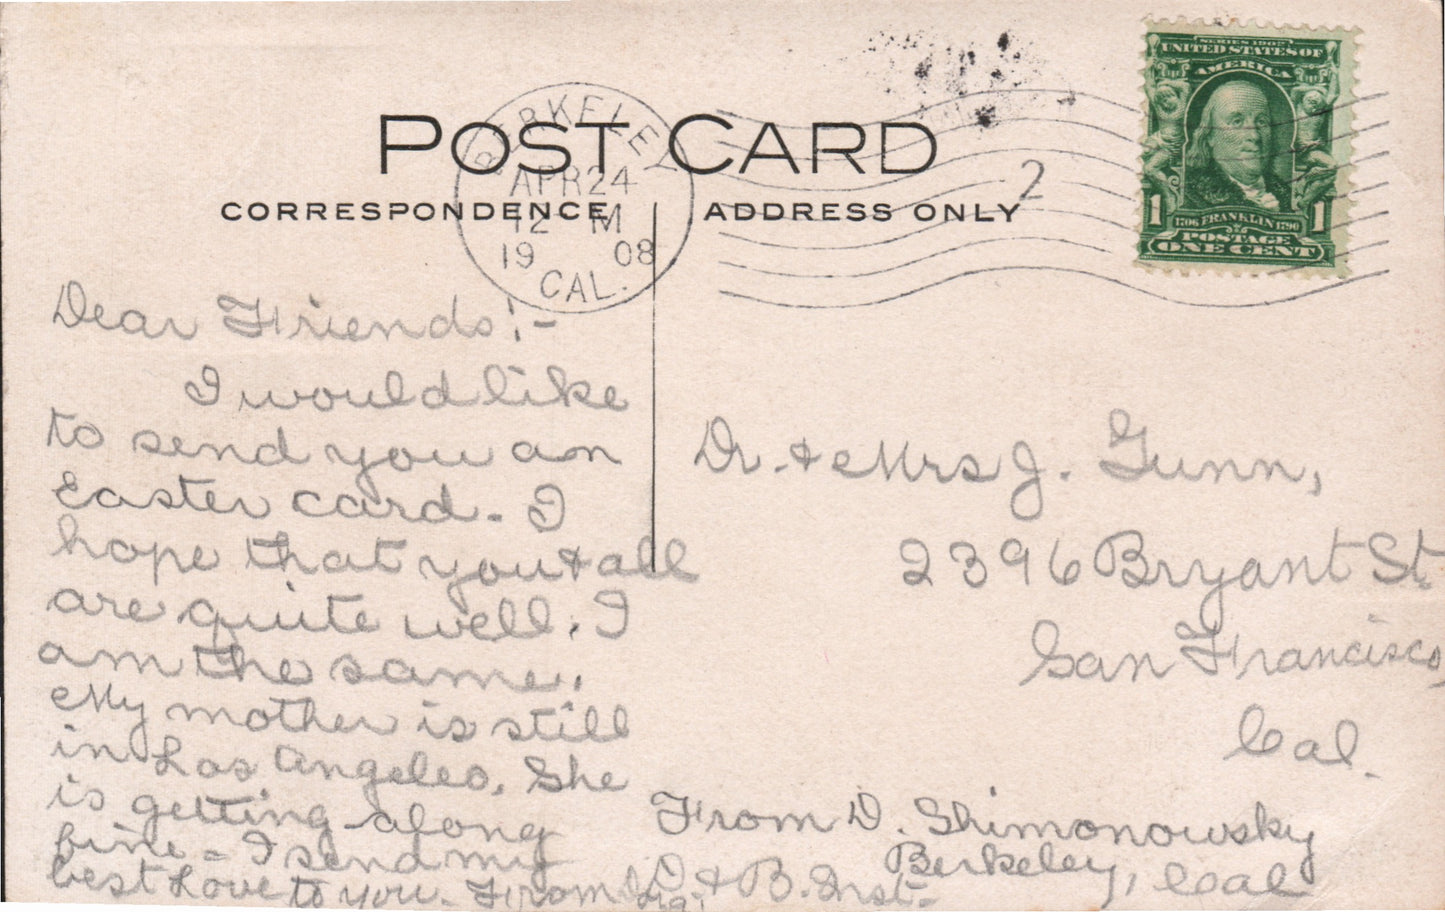 POST CARD
CORRESPONDENCE
ADDRESS ONLY
BERKELEY
APR 24
12 M
19 08
CAL.
2
SERIES 1902
UNITED STATES OF
AMERICA
1706 FRANKLIN 1790
1 1
POSTAGE
ONE CENT
Dear Friends:-
I would like
to send you an
Easter card. I
hope that you & all
are quite well. I
am the same.
My mother is still
in Los Angeles. She
is getting along
fine - I send my
best Love to you. From
Dr. & Mrs J. Gunn,
2396 Bryant St.
San Francisco,
Cal.
From D. Shimonowsky
D. & B. Inst.
Berkeley, Cal